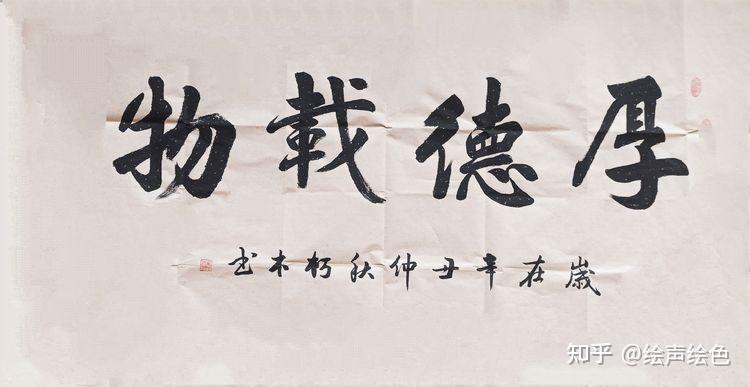 厚德載物
歲在辛丑仲秋朽木书
知乎 @绘声绘色